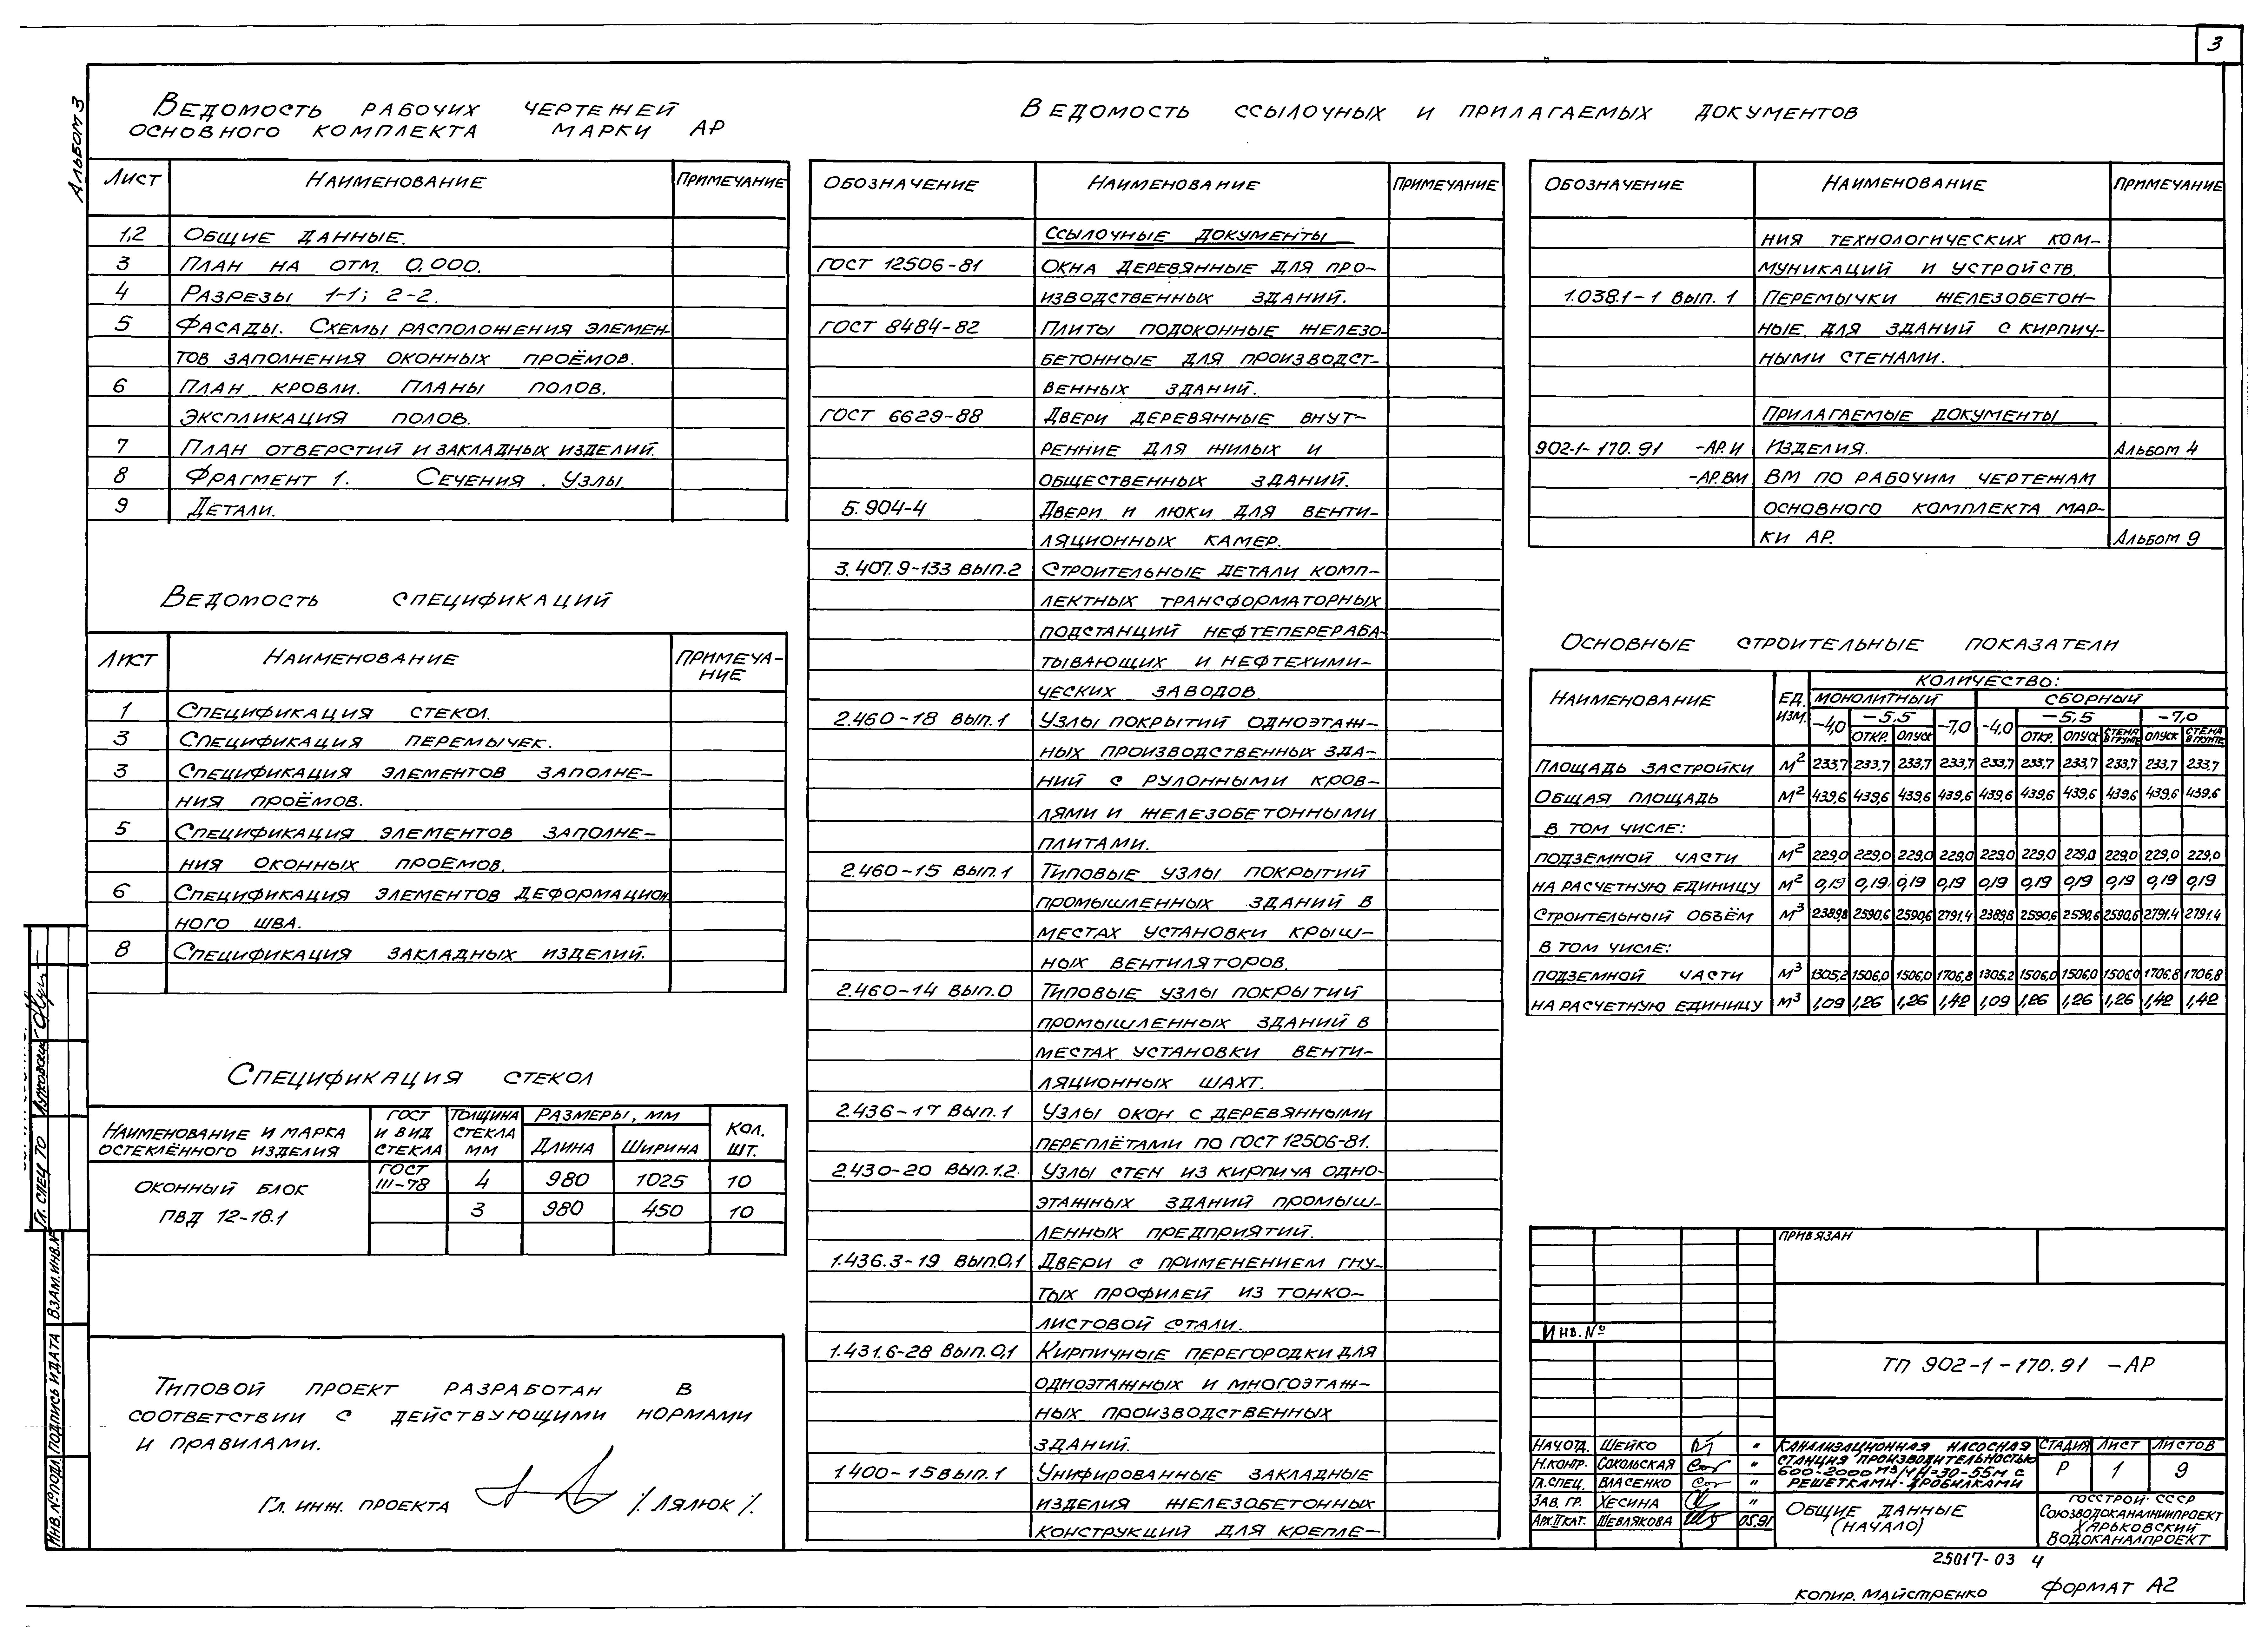 3
Альбом 3
Ведомость рабочих чертежей
основного комплекта марки АР
Лист Наименование Примечание
1,2 Общие данные.
3 План на отм. 0.000.
4 Разрезы 1-1; 2-2.
5 Фасады. Схемы расположения элемен-
тов заполнения оконных проёмов.
6 План кровли. Планы полов.
Экспликация полов.
7 План отверстий и закладных изделий.
8 Фрагмент 1. Сечения. Узлы.
9 Детали.
Ведомость спецификаций
Лист Наименование Примеча-
ние
1 Спецификация стекол.
3 Спецификация перемычек.
3 Спецификация элементов заполне-
ния проёмов.
5 Спецификация элементов заполне-
ния оконных проемов.
6 Спецификация элементов деформацион-
ного шва.
8 Спецификация закладных изделий.
Спецификация стекол
Наименование и марка остеклённого изделия
ГОСТ и вид стекла
Толщина стекла мм
Размеры, мм
Длина Ширина
Кол. шт.
Оконный блок
ПВД 12-18.1
ГОСТ
111-78 4 980 1025 10
3 980 450 10
Типовой проект разработан в
соответствии с действующими нормами
и правилами.
Гл. инж. проекта /. Лялюк /.
Ведомость ссылочных и прилагаемых документов
Обозначение Наименование Примечание
Ссылочные документы
ГОСТ 12506-81 Окна деревянные для про-
изводственных зданий.
ГОСТ 8484-82 Плиты подоконные железо-
бетонные для производст-
венных зданий.
ГОСТ 6629-88 Двери деревянные внут-
ренние для жилых и
общественных зданий.
5.904-4 Двери и люки для венти-
ляционных камер.
3.407.9-133 вып.2 Строительные детали комп-
лектных трансформаторных
подстанций нефтеперераба-
тывающих и нефтехими-
ческих заводов.
2.460-18 вып.1 Узлы покрытий одноэтаж-
ных производственных зда-
ний с рулонными кров-
лями и железобетонными
плитами.
2.460-15 вып.1 Типовые узлы покрытий
промышленных зданий в
местах установки крыш-
ных вентиляторов.
2.460-14 вып.0 Типовые узлы покрытий
промышленных зданий в
местах установки венти-
ляционных шахт.
2.436-17 вып.1 Узлы окон с деревянными
переплётами по ГОСТ 12506-81.
2.430-20 вып.1.2. Узлы стен из кирпича одно-
этажных зданий промыш-
ленных предприятий.
1.436.3-19 вып.0,1 Двери с применением гну-
тых профилей из тонко-
листовой стали.
1.431.6-28 вып.0,1 Кирпичные перегородки для
одноэтажных и многоэтаж-
ных производственных
зданий.
1.400-15 вып.1 Унифированные закладные
изделия железобетонных
конструкций для крепле-
Обозначение Наименование Примечание
ния технологических ком-
муникаций и устройств.
1.038.1-1 вып. 1 Перемычки железобетон-
ные для зданий с кирпич-
ными стенами.
Прилагаемые документы
902-1-170.91 -АР.И Изделия. Альбом 4
-АР.ВМ ВМ по рабочим чертежам
основного комплекта мар-
ки АР. Альбом 9
Основные строительные показатели
Наименование Ед. изм. Количество:
Монолитный Сборный
-4,0 -5,5 -7,0 -4,0 -5,5 -7,0
откр. опуск откр. опуск стена в грунте опуск стена в грунте
Площадь застройки м2 233,7 233,7 233,7 233,7 233,7 233,7 233,7 233,7 233,7 233,7
Общая площадь м2 439,6 439,6 439,6 439,6 439,6 439,6 439,6 439,6 439,6 439,6
в том числе:
подземной части м2 229,0 229,0 229,0 229,0 229,0 229,0 229,0 229,0 229,0 229,0
на расчетную единицу м2 0,19 0,19 0,19 0,19 0,19 0,19 0,19 0,19 0,19 0,19
Строительный объём м3 2389,8 2590,6 2590,6 2791,4 2389,8 2590,6 2590,6 2590,6 2791,4 2791,4
в том числе:
подземной части м3 1305,2 1506,0 1506,0 1706,8 1305,2 1506,0 1506,0 1506,0 1706,8 1706,8
на расчетную единицу м3 1,09 1,26 1,26 1,42 1,09 1,26 1,26 1,26 1,42 1,42
Привязан
Инв. №
ТП 902-1-170.91 -АР
Нач.отд. Шейко "
Н.контр. Сокольская "
Гл.спец. Власенко "
Зав. гр. Хесина "
Арх.II кат. Шевлякова 05.91
Канализационная насосная
станция производительностью
600-2000 м3/ч Н=30-55м с
решетками-дробилками
Стадия Лист Листов
Р 1 9
Общие данные
(начало)
Госстрой СССР
Союзводоканалниипроект
Харьковский
Водоканалпроект
25017-03 4
Копир. Майстренко Формат А2
Гл. спец ТО
Инв. № подл. Подпись и дата Взам. инв. №